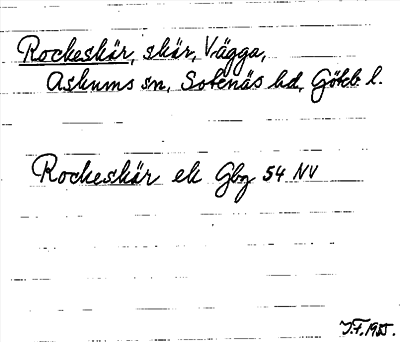 Rockeskär, skär, Vägga,
Askums sn, Sotenäs hd, Göteb l.
Rockeskär ek Gbg 54 NV
J.F. 1955.